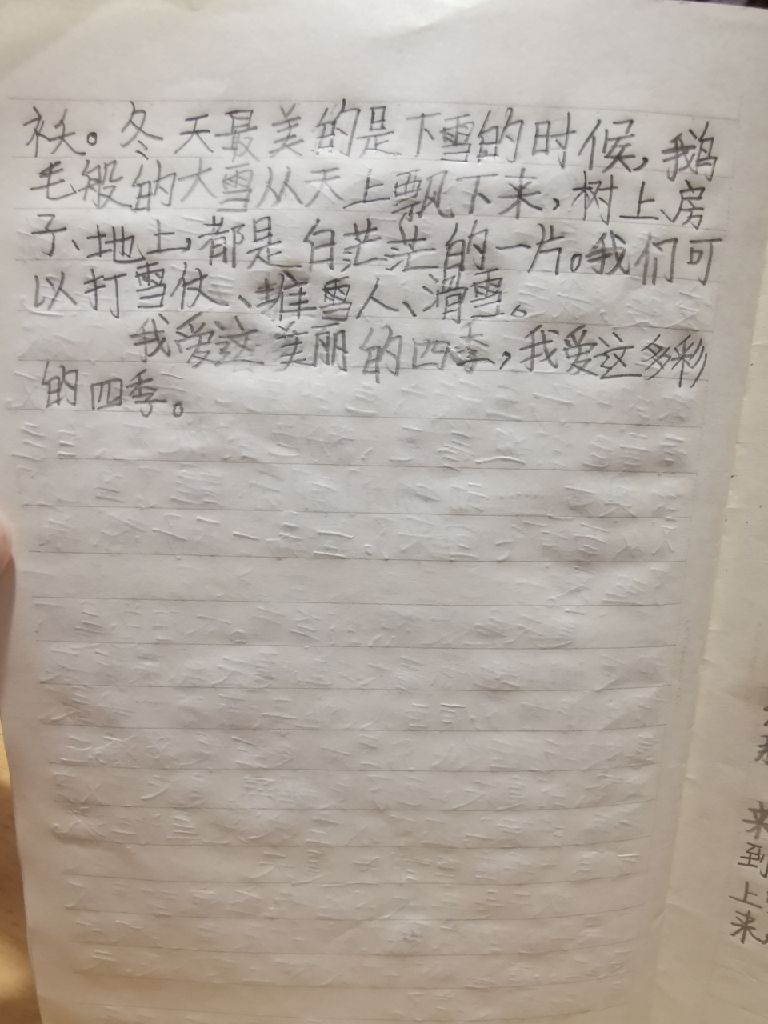 袄。冬天最美的是下雪的时候,鹅
毛般的大雪从天上飘下来,树上、房
子、地上,都是白茫茫的一片。我们可
以打雪仗、堆雪人、滑雪。
我爱这美丽的四季,我爱这多彩
的四季。
来
到
上
来,